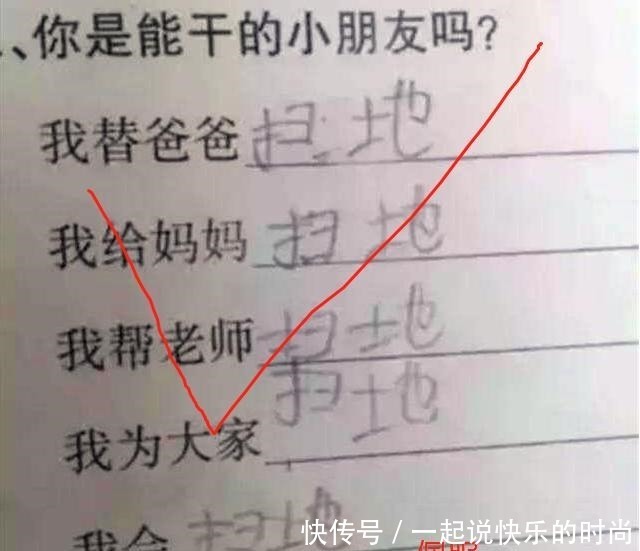 、你是能干的小朋友吗?
我替爸爸扫地
我给妈妈扫地
我帮老师扫地
我为大家扫地
我会扫地
快传号/一起说快乐的时尚